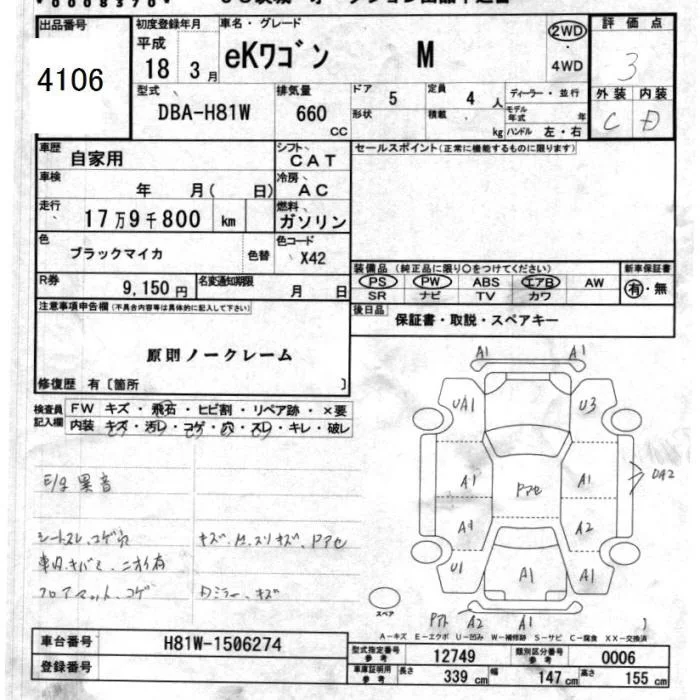 *0008370*
出品番号
4106
初度登録年月
平成
18 3月
車名・グレード
eKワゴン M
2WD・4WD
評価点
3
型式
DBA-H81W
排気量
660 CC
ドア
5
定員
4 人
形状
積載 kg
ディーラー・並行
モデル年式 年
ハンドル 左・右
外装 内装
C D
車歴
自家用
シフト
CAT
セールスポイント(正常に機能するものに限ります)
車検
年 月( 日)
冷房
AC
走行
17万9千800 km
燃料
ガソリン
色
ブラックマイカ
色替
色コード
X42
装備品(純正品に限り○をつけてください)
PS PW ABS エアB AW
SR ナビ TV カワ
新車保証書
有・無
R券
9,150円
名変通知期限
月 日
後日品
保証書・取説・スペアキー
注意事項申告欄(不具合内容等は具体的に記入して下さい)
原則ノークレーム
修復歴 有〔箇所 〕
検査員記入欄
FW キズ・飛石・ヒビ割・リペア跡・×要
内装 キズ・汚レ・コゲ・穴・スレ・キレ・破レ
E/g 異音
シートスレ、コゲ穴
キズ、凹、スリキズ、Pアセ
フロアマット、コゲ
Dミラー、キズ
A1 A1
UA1 U3
A1 Pアセ A1
DA2
A1 A2
U1 A1 A1
スペア
A2 A1
A-キズ E-エクボ U-凹み W-補修跡 S-サビ C-腐食 XX-交換済
車台番号
H81W-1506274
型式指定番号 参考
12749
類別区分番号 参考
0006
登録番号
車庫証明用 参考
長さ 339 cm 幅 147 cm 高さ 155 cm